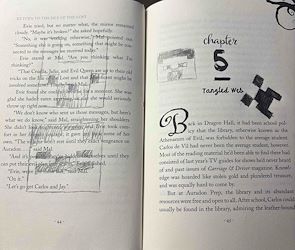 RETURN TO THE ISLE OF THE LOST
Evie tried, but no matter what, the mirror remained
cloudy. "Maybe it's broken?" she asked hopefully.
"No, it was working otherwise," Mal pointed out.
"Something else is going on, something that might be con-
nected to the messages we received today."
Evie stared at Mal. "Are you thinking what I'm
thinking?"
"That Cruella, Jafar, and Evil Queen are up to their old
tricks on the Isle of
involved somehow
Evie found she could
glad she hadn't eaten
throw up right
"We don't know who sent us those messages, but here's
what we do know," said Mal, straightening her shoulders.
She didn't look
comfort
ones. "The villains won't rest until they exact vengeance on
Auradon." said Mal.
"And it's
can put their
"On it."
"Let's go get Carlos and Jay."
44
chapter
5
Tangled Web
Back in Dragon Hall, it had been school pol-
icy that the library, otherwise known as the
Athenaeum of Evil, was forbidden to the average student.
Carlos de Vil had never been the average student, however.
Most of the reading material he'd been able to find there had
consisted of last year's TV guides for shows he'd never heard
of and past issues of Carriage & Driver magazine. Knowl-
edge was hoarded like stolen gold and plundered treasure,
and was equally hard to come by.
But at Auradon Prep, the library and its abundant
resources were free and open to all. After school, Carlos could
usually be found in the library, admiring the leather-bound
45